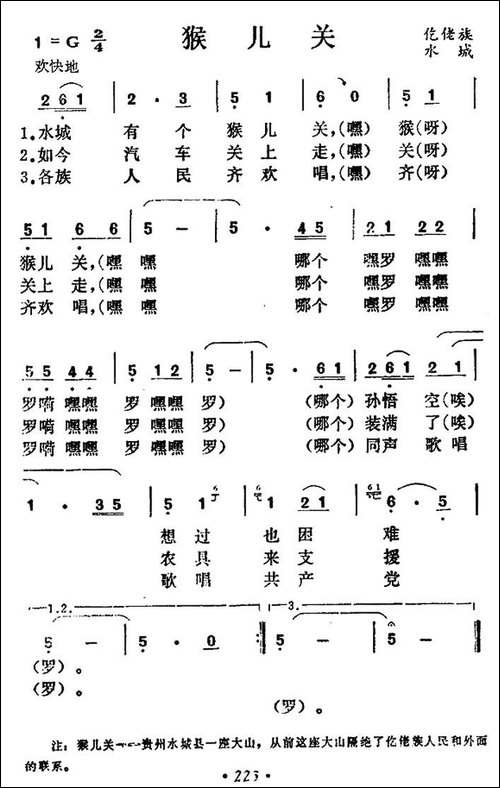 猴儿关
1=G 2/4
仡佬族
水城
欢快地
2 6 1 2 · 3 5 1 6 0 5 1
1.水城 有个 猴儿 关,(嘿) 猴(呀)
2.如今 汽车 关上 走,(嘿) 关(呀)
3.各族 人民 齐欢 唱,(嘿) 齐(呀)
5 1 6 6 5 — 5 · 4 5 2 1 2 2
猴儿 关,(嘿 嘿 哪个 嘿罗 嘿嘿
关上 走,(嘿 嘿 哪个 嘿罗 嘿嘿
齐欢 唱,(嘿 嘿 哪个 嘿罗 嘿嘿
5 5 4 4 5 1 2 5 — 5 · 6 1 2 6 1 2 1
罗嗬 嘿嘿 罗 嘿嘿 罗) (哪个) 孙悟 空(唉)
罗嗬 嘿嘿 罗 嘿嘿 罗) (哪个) 装满 了(唉)
罗嗬 嘿嘿 罗 嘿嘿 罗) (哪个) 同声 歌唱
1 · 3 5 5 6 1 1 2 1 6 1 6 · 5
想过 也困 难
农具 来支 援
歌唱 共产 党
1.2. 3.
5 — 5 · 0 5 — 5 —
(罗)。
(罗)。
(罗)。
注:猴儿关——贵州水城县一座大山,从前这座大山隔绝了仡佬族人民和外面
的联系。
· 223 ·